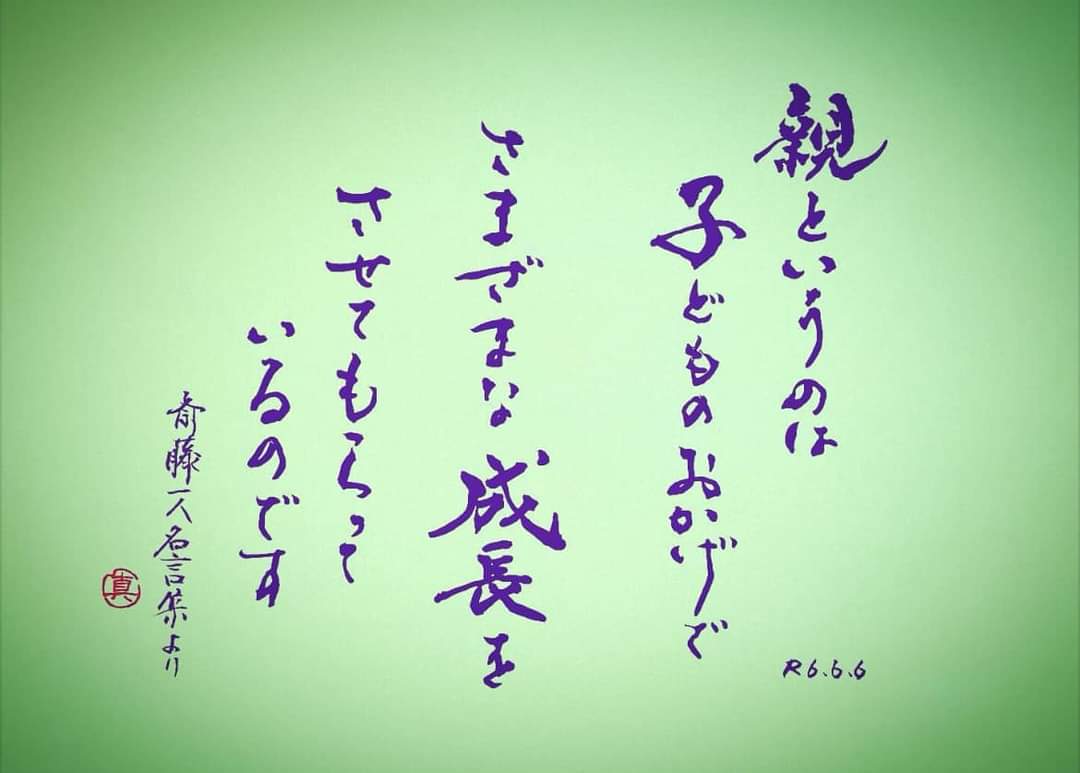 親というのは
子どものおかげで
さまざまな成長を
させてもらって
いるのです
斎藤一人名言集より
真
R6.6.6